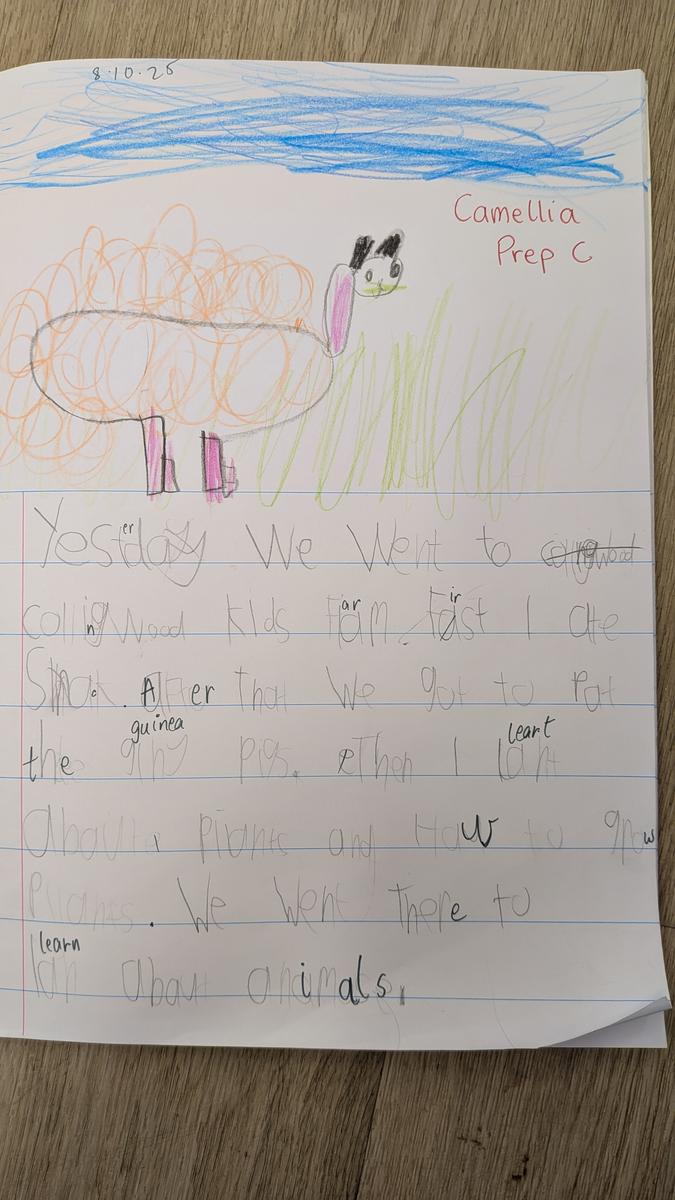 8.10.25
Camellia
Prep C
er
Yestday We Went to
ar ir
collingwood kids Fam. Fast I ate
Snac. After that We got to Pat
guinea leart
the giny Pigs. Then I lant
About Plants and How to grow
Plants. We Went There to
learn
lan about animals.